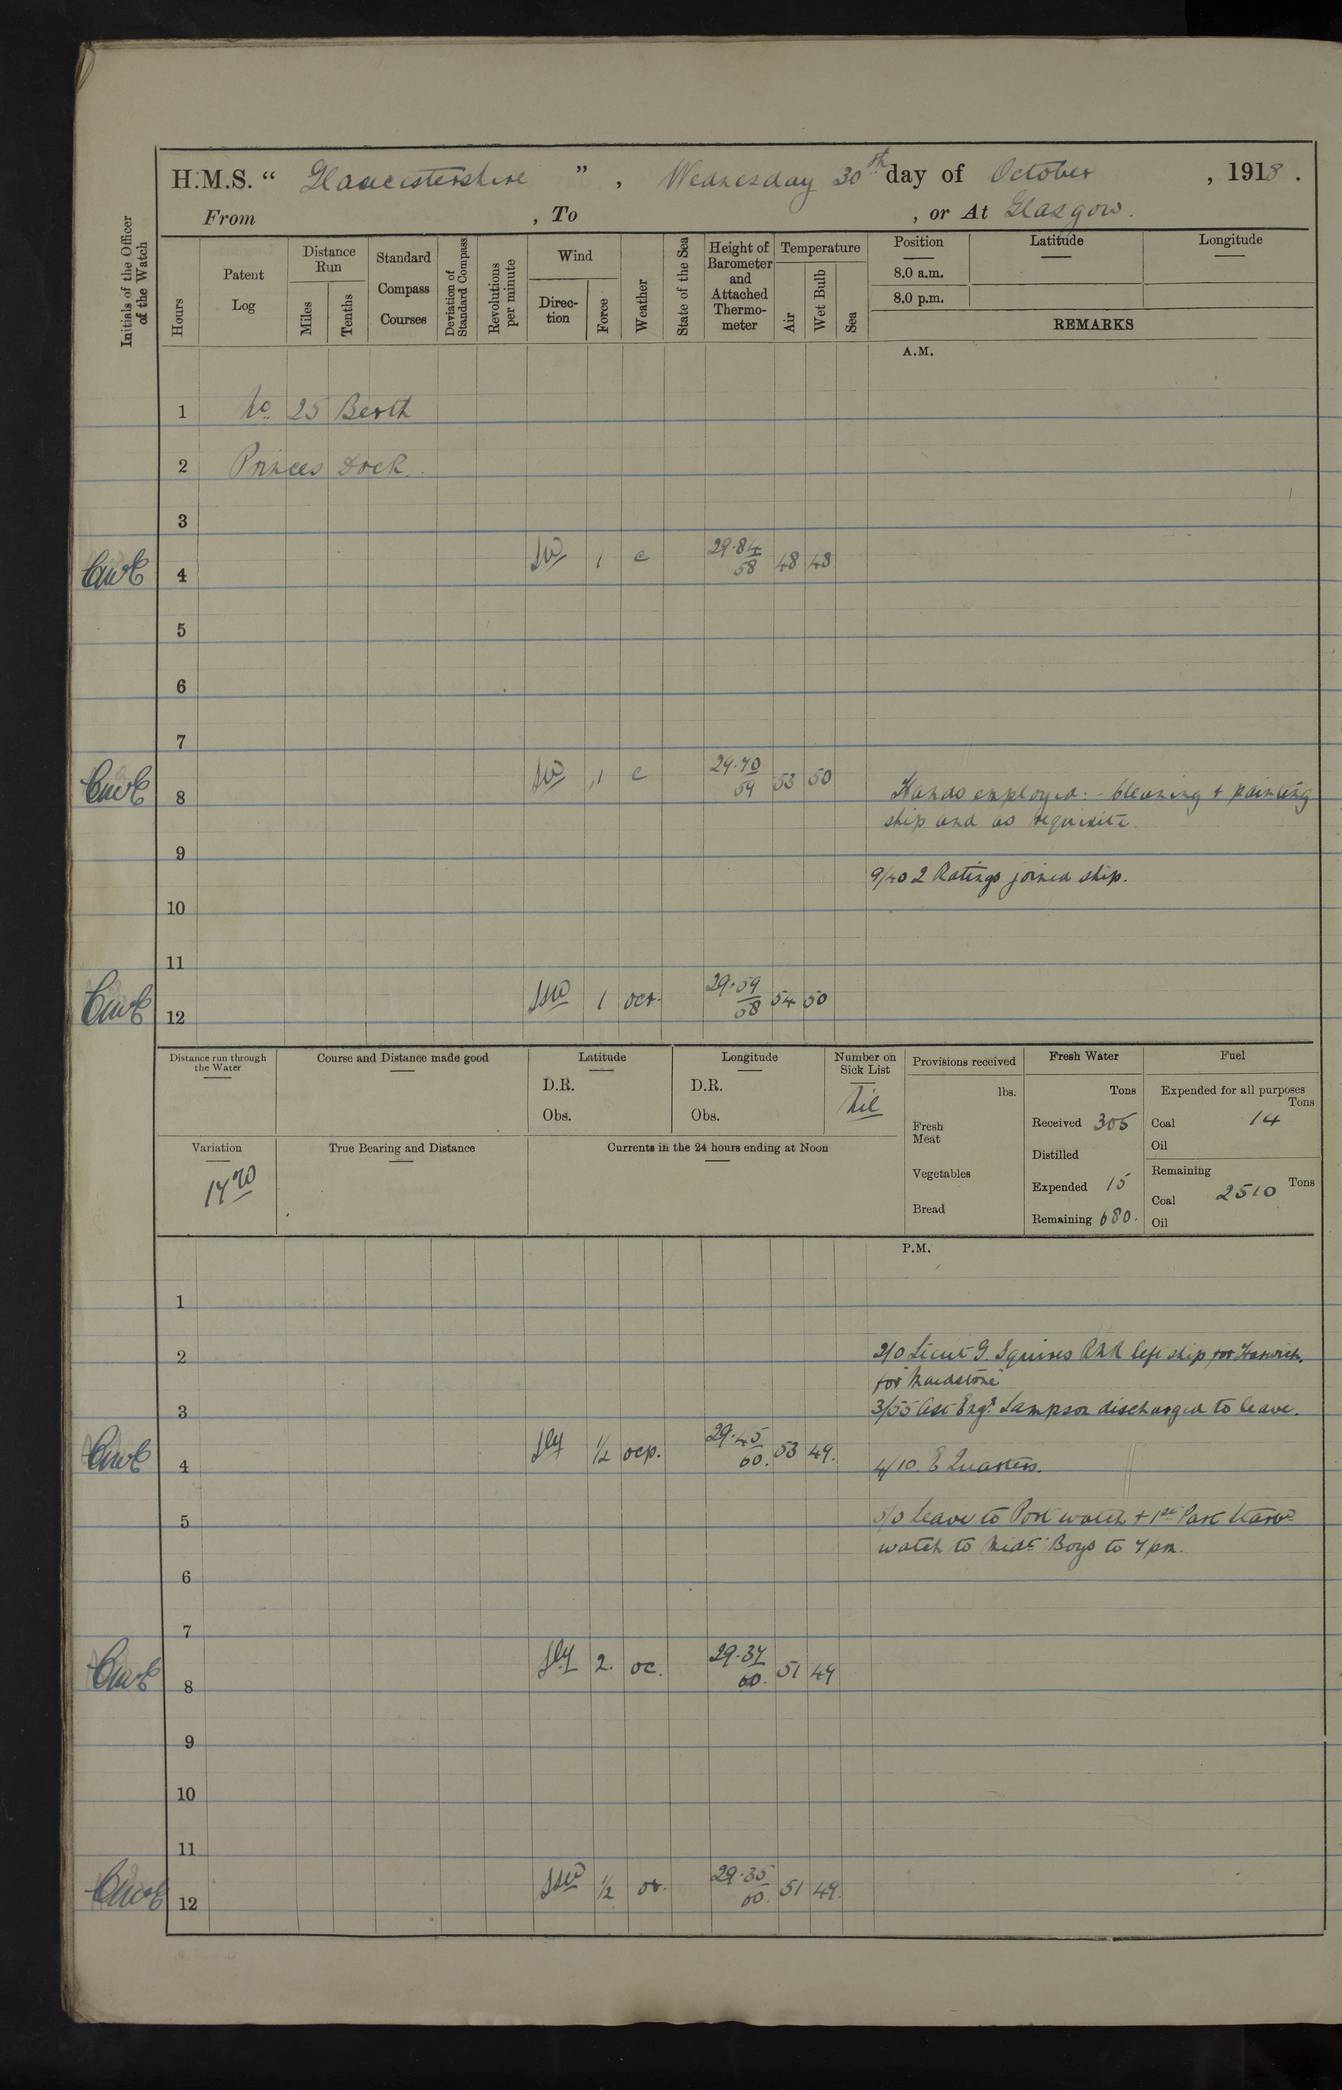 H.M.S. “ Gloucestershire ” , Wednesday 30th day of October , 1918 .
From , To , or At Glasgow.
Initials of the Officer of the Watch
Hours
Patent Log
Distance Run
Miles
Tenths
Standard Compass Courses
Deviation of Standard Compass
Revolutions per minute
Wind
Direction
Force
Weather
State of the Sea
Height of Barometer and Attached Thermometer
Temperature
Air
Wet Bulb
Sea
Position Latitude Longitude
8.0 a.m.
8.0 p.m.
REMARKS
A.M.
1 No. 25 Berth
2 Princes Dock.
3
4 SW 1 c 29.84 58 48 48
5
6
7
8 SW 1 c 29.70 59 53 50 Hands employed:- Cleaning & painting
ship and as requisite
9
9/40 2 Ratings joined ship.
10
11
12 SSW 1 ocr. 29.59 58 54 50
Distance run through the Water
Course and Distance made good
Latitude
D.R.
Obs.
Longitude
D.R.
Obs.
Number on Sick List
Nil
Provisions received
lbs.
Fresh Meat
Vegetables
Bread
Fresh Water
Tons
Received 305
Distilled
Expended 15
Remaining 680.
Fuel
Expended for all purposes
Tons
Coal 14
Oil
Remaining
Tons
Coal 2510
Oil
Variation
True Bearing and Distance
Currents in the 24 hours ending at Noon
P.M.
1
2 Lieut G. Squires RNR left ship for Harwich.
for "Maidstone"
3 3/55 Asst Engr. Sampson discharged to leave.
4 Sly 1/2 ocp. 29.45 60. 53 49. 4/10. E Quarters.
5 5/0 Leave to Port watch & 1st Part Starbd
watch to Midt. Boys to 7 pm.
6
7
8 Sly 2. oc. 29.37 60. 51 49
9
10
11
12 SSW 1/2 or. 29.35 60. 51 49.